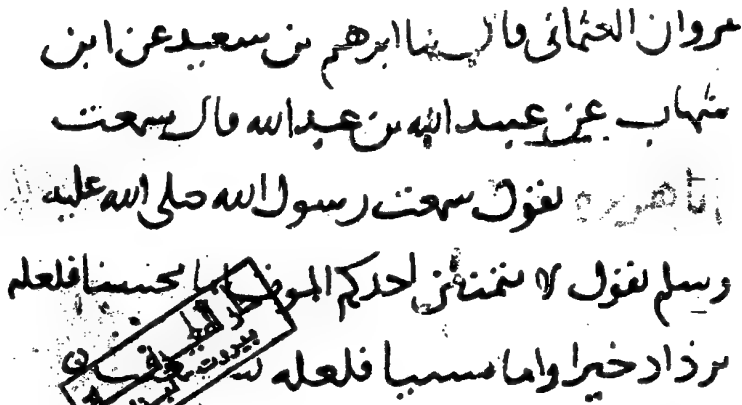 مروان العثمانى قال ثنا ابرهيم بن سعيد عن ابن
شهاب عن عبيد الله بن عبد الله قال سمعت
ابا هريره يقول سمعت رسول الله صلى الله عليه
وسلم يقول لا يتمنين احدكم الموت اما محسنا فلعله
يزداد خيرا واما مسيا فلعله
بيروت